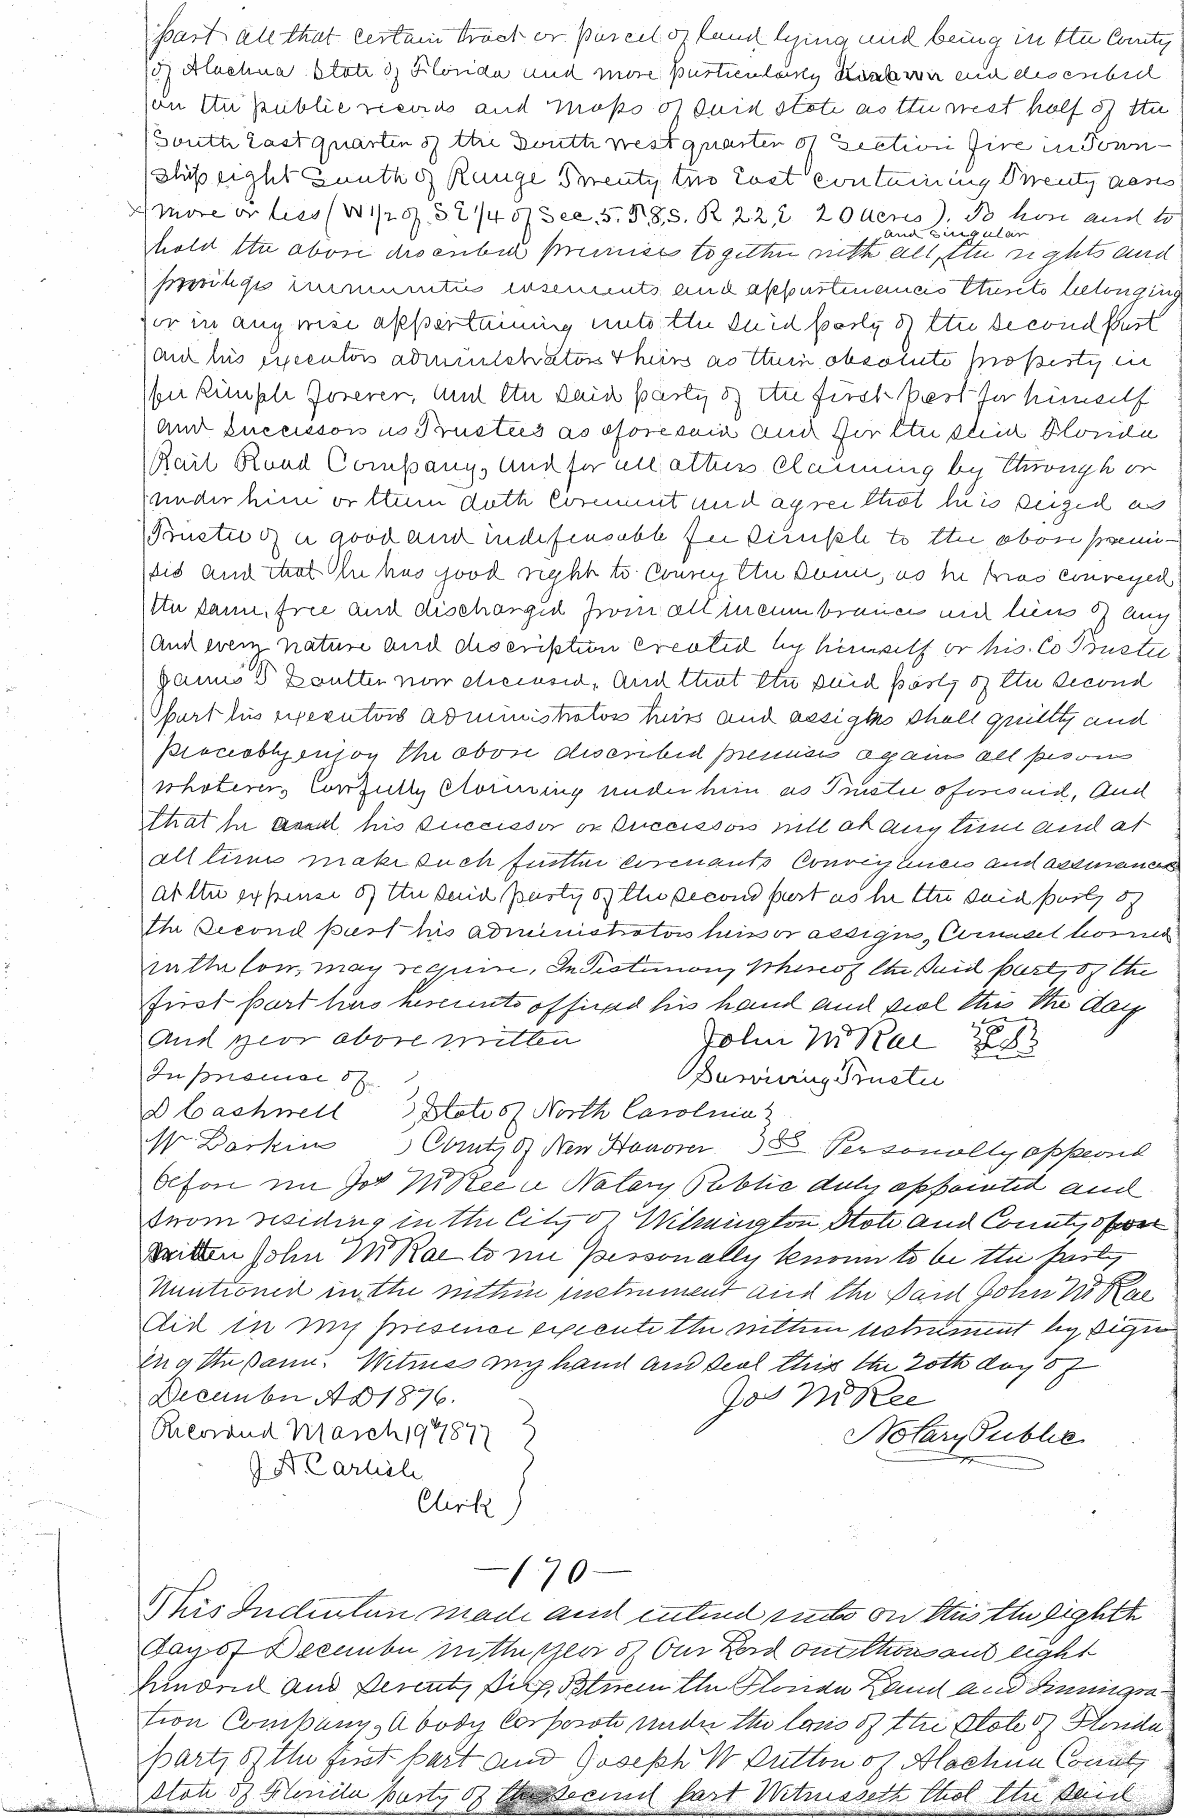 part all that certain tract or parcel of land lying and being in the County
of Alachua State of Florida and more particularly Known and described
on the public records and maps of said state as the west half of the
South East quarter of the South west quarter of Section five in Town-
ship eight South of Range Twenty two East containing Twenty acres
more or less (W 1/2 of S E 1/4 of Sec. 5. T 8, S. R 22, E 20 acres). To have and to
hold the above described premises together with all, and singular the rights and
privileges immunities easements and appurtenances thereto belonging
or in any wise appertaining unto the said party of the second part
and his executors administrators & heirs as their absolute property in
fee simple forever, and the said party of the first part for himself
and successors as Trustees as aforesaid and for the said Florida
Rail Road Company, and for all others claiming by through or
under him or them doth covenant and agree that he is seized as
Trustee of a good and indefeasable fee simple to the above premi-
ses and that he has good right to convey the same, as he has conveyed
the same, free and discharged from all incumbrances and liens of any
and every nature and description created by himself or his Co Trustee
James T Soutter now deceased, and that the said party of the second
part his executors administrators heirs and assigns shall quietly and
peaceably enjoy the above described premises agains all persons
whatever, lawfully claiming under him as Trustee aforesaid, and
that he and his successor or successors will at any time and at
all times make such further covenants conveyances and assurances
at the expense of the said party of the second part as he the said party of
the second part his administrators heirs or assigns, Counsel learned
in the law, may require, In Testimony Whereof the said party of the
first part has hereunto affixed his hand and seal this the day
and year above written John McRae LS
In presence of Surviving Trustee
D Cashwell ) State of North Carolina }
W Larkins ) County of New Hanover } SS Personally appeared
before me Jos McRee a Notary Public duly appointed and
sworn residing in the City of Wilmington, State and County afore
written John McRae to me personally known to be the party
mentioned in the within instrument and the said John McRae
did in my presence execute the within instrument by sign
ing the same. Witness my hand and seal this the 20th day of
December AD 1876. Jos McRee
Recorded March 19th 1877 } Notary Public
J A Carlisle
Clerk
—170—
This Indenture made and entered into on this the eighth
day of December in the year of Our Lord one thousand eight
hundred and seventy six, Between the Florida Land and Immigra-
tion Company, a body Corporate under the laws of the State of Florida
party of the first part and Joseph W Sutton of Alachua County
State of Florida party of the second part Witnesseth that the said